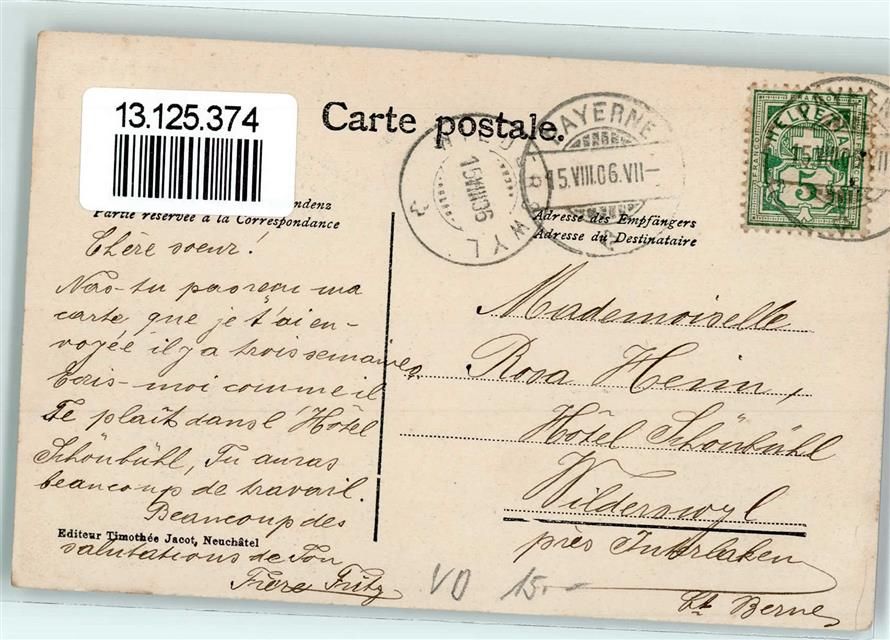 13.125.374
Carte postale.
WILDERSWYL
15.VIII.06
PAYERNE
15.VIII.06.VII
FRANCO
HELVETIA
5
Partie réservée à la Correspondance
Adresse des Empfängers
Adresse du Destinataire
Chère soeur!
Nas-tu pas reçu ma
carte que je t'ai en-
voyée il y a trois semaines.
Ecris-moi comme il
Te plaît dans l'Hôtel
Schönbühl, Tu auras
beaucoup de travail.
Beaucoup des
salutations de Ton
Frère Fritz
Editeur Timothée Jacot, Neuchâtel
Mademoiselle
Rosa
Hôtel Schönbühl
Wilderswyl
près Interlaken
Ct. Berne
VO 15.-